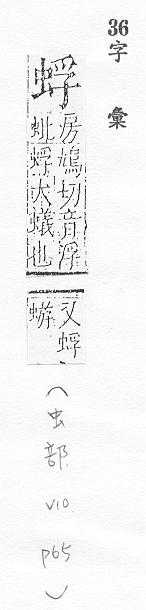 36字彙
蜉
房鳩切音浮
蚍蜉大蟻也
又蜉
蝣
(虫部 V10 p65)